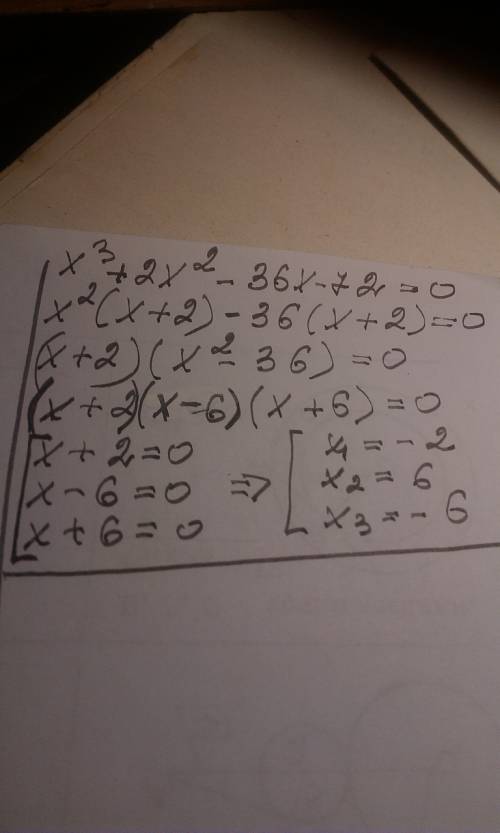 x³ + 2x² - 36x - 72 = 0
x²(x+2) - 36(x+2) = 0
(x+2)(x² - 36) = 0
(x+2)(x-6)(x+6) = 0
x + 2 = 0 x₁ = -2
x - 6 = 0 => x₂ = 6
x + 6 = 0 x₃ = -6